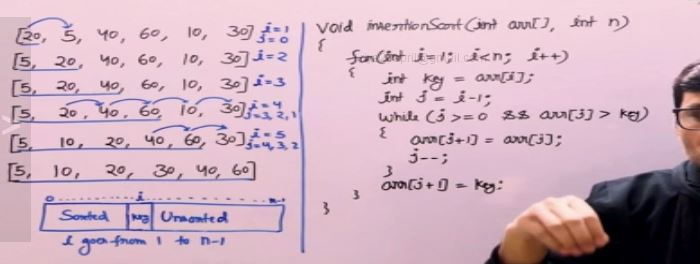 [20, 5, 40, 60, 10, 30] i=1
j=0
[5, 20, 40, 60, 10, 30] i=2
[5, 20, 40, 60, 10, 30] i=3
[5, 20, 40, 60, 10, 30] i=4
j=3, 2, 1
[5, 10, 20, 40, 60, 30] i=5
j=4, 3, 2
[5, 10, 20, 30, 40, 60]
0 i n-1
Sorted key Unsorted
i goes from 1 to n-1
void insertionSort(int arr[], int n)
{
for(int i=1; i<n; i++)
{
int key = arr[i];
int j = i-1;
while (j>=0 && arr[j] > key)
{
arr[j+1] = arr[j];
j--;
}
arr[j+1] = key;
}
}